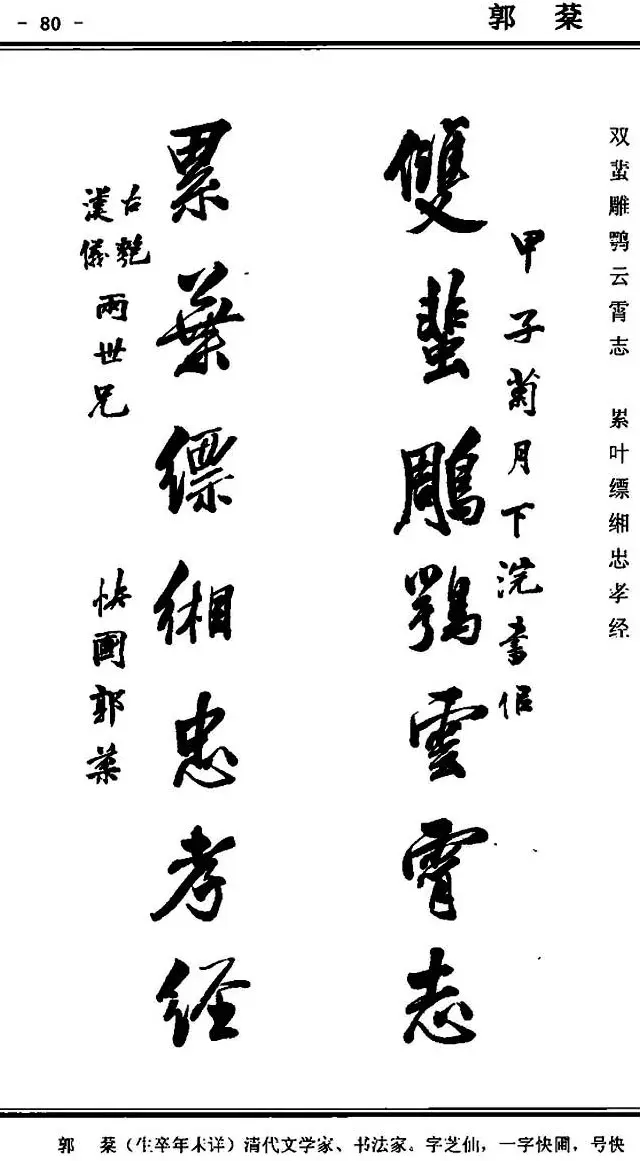 - 80 -
郭 棻
双蜚雕鹗云霄志 累叶缥缃忠孝经
甲子菊月下浣書
雙蜚鵰鶚雲霄志
累葉縹緗忠孝經
古
漢儀
兩世兄
快圃郭棻
郭 棻（生卒年未详）清代文学家、书法家。字芝仙，一字快圃，号快